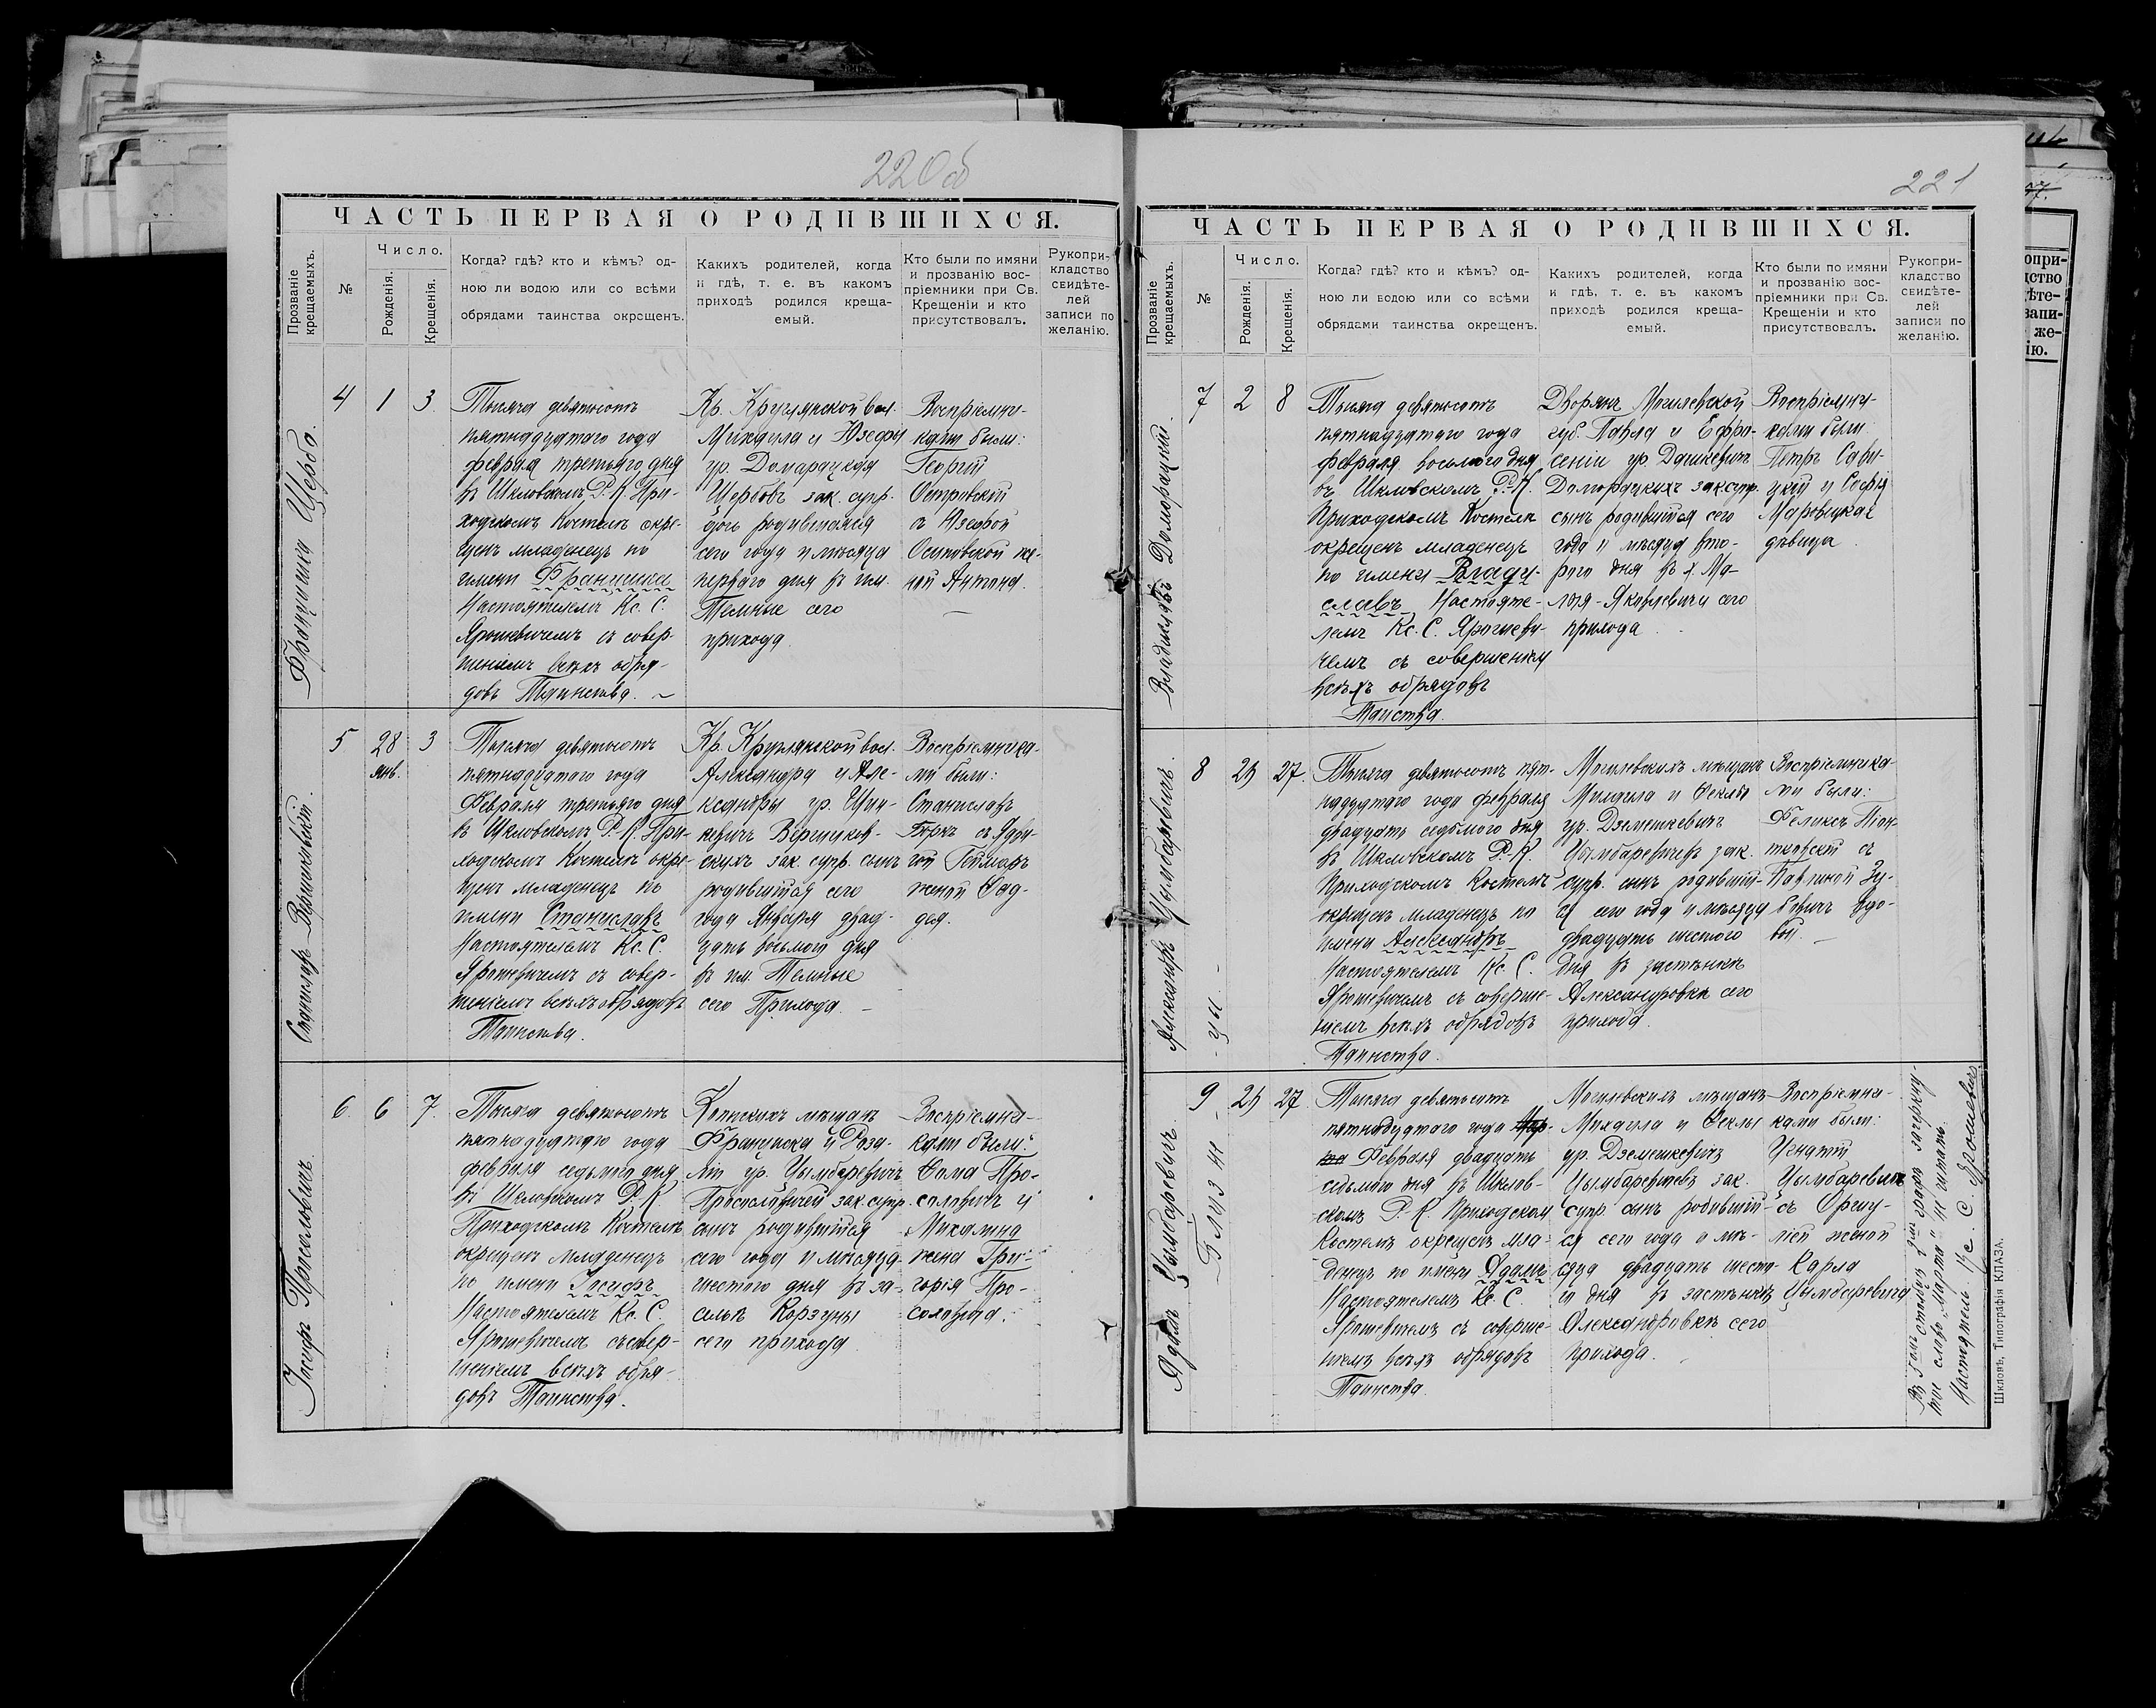 220об
ЧАСТЬ ПЕРВАЯ О РОДИВШИХСЯ.
Прозваніе крещаемыхъ.
№
Число.
Рожденія.
Крещенія.
Когда? гдѣ? кто и кѣмъ? од-
ною ли водою или со всѣми
обрядами таинства окрещенъ.
Какихъ родителей, когда
и гдѣ, т. е. въ какомъ
приходѣ родился креща-
емый.
Кто были по имяни
и прозванію вос-
пріемники при Св.
Крещеніи и кто
присутствовалъ.
Рукопри-
кладство
свидѣте-
лей
записи по
желанію.
Францишка Щербо.
4 1 3
Тысяча девятьсотъ
пятнадцатаго года
февраля третьяго дня
въ Шкловскомъ Р. К. При-
ходскомъ Костелѣ окре-
щенъ младенецъ по
имени Францишка
Настоятелемъ Кс. С.
Ярошевичемъ съ совер-
шеніемъ всѣхъ обря-
довъ Таинства.
Кр. Круглянской вол.
Михаила и Юзефы
ур. Домарацкая
Щербовъ зак. супр.
дочь родившаяся
сего года и мѣсяца
перваго дня въ им.
Темные сего
прихода
Воспріемни-
ками были:
Георгій
Островскій
съ Юзефой
Осиповской же-
ной Антона.
Станиславъ
5 28 янв. 3
Тысяча девятьсотъ
пятнадцатаго года
Февраля третьяго дня
въ Шкловскомъ Р.-К. При-
ходскомъ Костелѣ окре-
щенъ младенецъ по
имени Станиславъ
Настоятелемъ Кс. С.
Ярошевичемъ съ совер-
шеніемъ всѣхъ обрядовъ
Таинства.
Кр. Круглянской вол.
Александра и Але-
ксандры ур.
зак. супр. сынъ
родившійся сего
года Января двад-
цать восьмого дня
въ им. Темные
сего Прихода.
Воспріемника-
ми были:
Станиславъ
съ Ядви-
гой
женой Фад-
дея.
Іосифъ
6 6 7
Тысяча девятьсотъ
пятнадцатаго года
февраля седьмого дня
въ Шкловскомъ Р. К.
Приходскомъ Костелѣ
окрещенъ младенецъ
по имени Іосифъ
Настоятелемъ Кс. С.
Ярошевичемъ съ совер-
шеніемъ всѣхъ обря-
довъ Таинства.
Копыскихъ мѣщанъ
Франциска и Роза-
ліи ур. Цымбаревичъ
зак. супр.
сынъ родившійся
сего года и мѣсяца
шестого дня въ за-
сельѣ Корзуны
сего прихода
Воспріемни-
ками были:
Фома Про-
соловичъ и
Михалина
жена Гри-
горія Про-
соловича.
221
ЧАСТЬ ПЕРВАЯ О РОДИВШИХСЯ.
Прозваніе крещаемыхъ.
№
Число.
Рожденія.
Крещенія.
Когда? гдѣ? кто и кѣмъ? од-
ною ли водою или со всѣми
обрядами таинства окрещенъ.
Какихъ родителей, когда
и гдѣ, т. е. въ какомъ
приходѣ родился креща-
емый.
Кто были по имяни
и прозванію вос-
пріемники при Св.
Крещеніи и кто
присутствовалъ.
Рукопри-
кладство
свидѣте-
лей
записи по
желанію.
Владиславъ Доморацкій
7 2 8
Тысяча девятьсотъ
пятнадцатаго года
февраля восьмого дня
въ Шкловскомъ Р.-К.
Приходскомъ Костелѣ
окрещенъ младенецъ
по имени Влади-
славъ Настояте-
лемъ Кс. С. Ярошеви-
чемъ съ совершеніем
всѣхъ обрядовъ
Таинства.
Дворянъ Могилевской
губ. Павла и Ефро-
сеніи ур. Дашкевичъ
Доморацкихъ зак. супр.
сынъ родившійся сего
года и мѣсяца вто-
рого дня въ
сего
прихода.
Воспріемни-
ками были:
Петръ Сави-
цкій и Софія
дѣвица.
Александръ Цымбаревичъ.
- Цы -
8 26 27.
Тысяча девятьсотъ пят-
надцатаго года февраля
двадцать седьмого дня
въ Шкловскомъ Р.-К.
Приходскомъ Костелѣ
окрещенъ младенецъ по
имени Александръ
Настоятелемъ Кс. С.
Ярошевичемъ съ соверше-
ніемъ всѣхъ обрядовъ
Таинства.
Могилевскихъ мѣщанъ
Михаила и Феклы
ур. Дземешкевичъ
Цымбаревичевъ зак.
супр. сынъ родившій-
ся сего года и мѣсяца
двадцать шестого
дня въ застѣнкѣ
Александровкѣ сего
прихода.
Воспріемника-
ми были:
Феликсъ Піон-
тковскій съ
Павлиной Зу-
бовичъ вдо-
вой.
Адамъ Цымбаревичъ
- Близн
9 26 27
Тысяча девятьсотъ
пятнадцатаго года Мар-
та Февраля двадцать
седьмого дня въ Шклов-
скомъ Р. К. Приходскомъ
Костелѣ окрещенъ мла-
денецъ по имени Адамъ
Настоятелемъ Кс. С.
Ярошевичемъ съ соверше-
ніемъ всѣхъ обрядовъ
Таинства.
Могилевскихъ мѣщанъ
Михаила и Феклы
ур. Дземешкевичъ
Цымбаревичевъ зак.
супр. сынъ родившій-
ся сего года и мѣ-
сяца двадцать шесто-
го дня въ застѣнкѣ
Александровкѣ сего
прихода.
Воспріемни-
ками были:
Игнатій
Цымбаревичъ
съ Орту-
ліей женой
Карла
Цымбаревича
зачеркну-
тое слово „Марта" не читать.
Настоятель Кс. С. Ярошевичъ
Шкловъ, Типографія КЛАЗА.